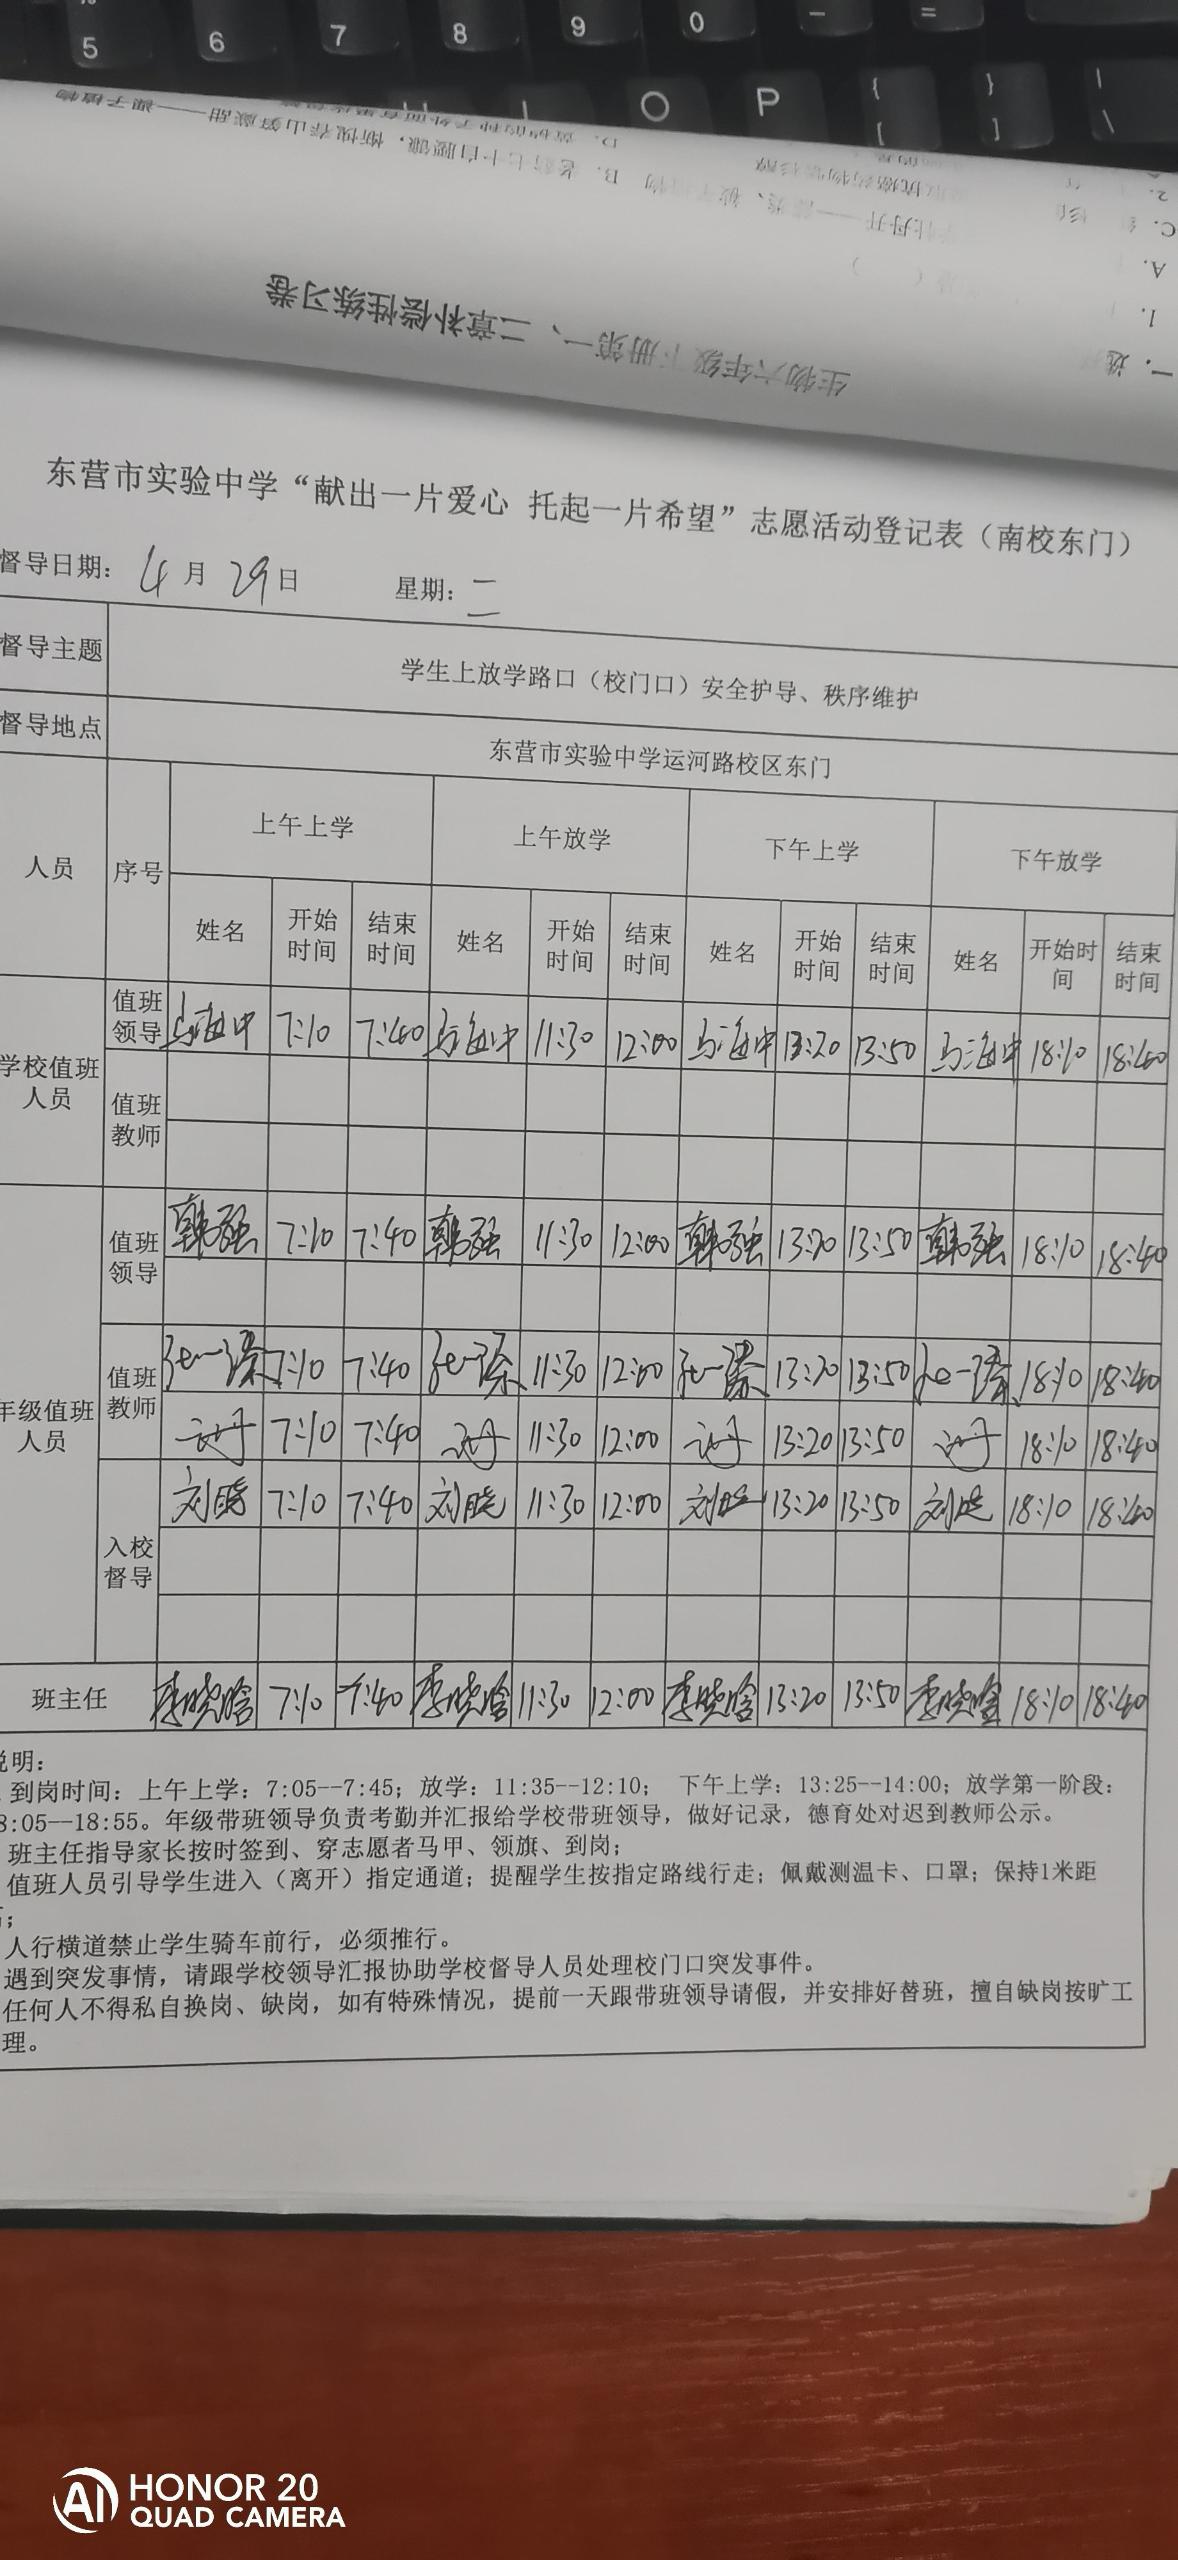 5 6 7 8 9 0 - =
O P { [ } ] | \
生物六年级下册第一、二章补偿性练习卷
东营市实验中学“献出一片爱心 托起一片希望”志愿活动登记表（南校东门）
督导日期：4月29日 星期：二
督导主题 学生上放学路口（校门口）安全护导、秩序维护
督导地点 东营市实验中学运河路校区东门
人员 序号 上午上学 上午放学 下午上学 下午放学
姓名 开始时间 结束时间 姓名 开始时间 结束时间 姓名 开始时间 结束时间 姓名 开始时间 结束时间
学校值班人员 值班领导 马海中 7:10 7:40 马海中 11:30 12:00 马海中 13:20 13:50 马海中 18:10 18:40
值班教师
年级值班人员 值班领导 韩强 7:10 7:40 韩强 11:30 12:00 韩强 13:20 13:50 韩强 18:10 18:40
值班教师 7:10 7:40 11:30 12:00 13:20 13:50 18:10 18:40
7:10 7:40 11:30 12:00 13:20 13:50 18:10 18:40
入校督导 刘晓 7:10 7:40 刘晓 11:30 12:00 刘晓 13:20 13:50 刘晓 18:10 18:40
班主任 李晓晗 7:10 7:40 李晓晗 11:30 12:00 李晓晗 13:20 13:50 李晓晗 18:10 18:40
说明：
到岗时间：上午上学：7:05--7:45；放学：11:35--12:10； 下午上学：13:25--14:00；放学第一阶段：
8:05--18:55。年级带班领导负责考勤并汇报给学校带班领导，做好记录，德育处对迟到教师公示。
班主任指导家长按时签到、穿志愿者马甲、领旗、到岗；
值班人员引导学生进入（离开）指定通道；提醒学生按指定路线行走；佩戴测温卡、口罩；保持1米距
；
人行横道禁止学生骑车前行，必须推行。
遇到突发事情，请跟学校领导汇报协助学校督导人员处理校门口突发事件。
任何人不得私自换岗、缺岗，如有特殊情况，提前一天跟带班领导请假，并安排好替班，擅自缺岗按旷工
理。
AI HONOR 20
QUAD CAMERA